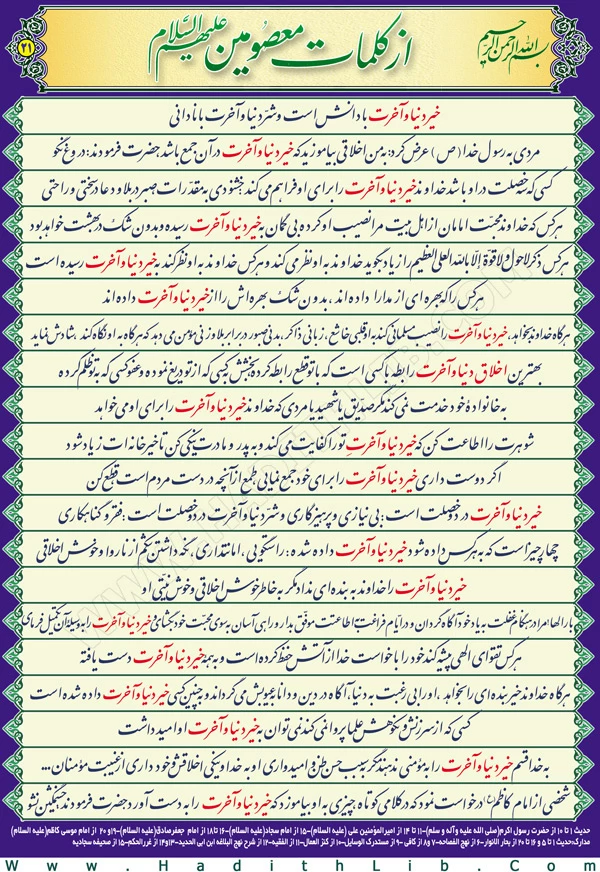 بسم الله الرحمن الرحیم
از کلمات معصومین علیهم السلام
۲۱
خیر دنیا و آخرت با دانش است و شرّ دنیا و آخرت با نادانی
مردی به رسول خدا (ص) عرض کرد: به من اخلاقی بیاموزید که خیر دنیا و آخرت در آن جمع باشد، حضرت فرمودند: دروغ نگو
کسی که خصلت در او باشد خداوند خیر دنیا و آخرت را برای او فراهم می کند: خشنودی به مقدّرات، صبر در بلا و دعا در سختی و راحتی
هر کس که خداوند محبّت امامان از اهل بیت مرا نصیب او کرده بی گمان به خیر دنیا و آخرت رسیده و بدون شک در بهشت خواهد بود
هر کس ذکر لاحول ولا قوّة إلّا بالله العلی العظیم را زیاد بگوید خداوند به او نظر می کند و هر کس خداوند به او نظر کند به خیر دنیا و آخرت رسیده است
هر کس را که بهره ای از مدارا داده اند، بدون شک بهره اش را از خیر دنیا و آخرت داده اند
هر گاه خداوند بخواهد، خیر دنیا و آخرت را نصیب مسلمانی کند به او قلبی خاشع، زبانی ذاکر، بدنی صبور در برابر بلا و زنی مؤمن می دهد که هر گاه به او نگاه کند، شادش نماید
بهترین اخلاق دنیا و آخرت رابطه با کسی است که با تو قطع رابطه کرده بخشش کسی که از تو دریغ نموده و عفو کسی که به تو ظلم کرده
به خانواده خود خدمت نمی کند مگر صدیق یا شهید یا مردی که خداوند خیر دنیا و آخرت را برای او می خواهد
شوهرت را اطاعت کن که خیر دنیا و آخرتِ تو را کفایت می کند و به پدر و مادرت نیکی کن تا خیر خانه ات زیاد شود
اگر دوست داری خیر دنیا و آخرت را برای خود جمع نمایی طمع از آنچه در دست مردم است قطع کن
خیر دنیا و آخرت در دو خصلت است: بی نیازی و پرهیزگاری و شرّ دنیا و آخرت در دو خصلت است: فقر و گناهکاری
چهار چیز است که به هر کس داده شود خیر دنیا و آخرت داده شده: راستگویی، امانتداری، نگه داشتن شکم از ناروا و خوش اخلاقی
خیر دنیا و آخرت را خداوند به بنده ای نداد مگر به خاطر خوش اخلاقی و خوش نیّتی او
بارالها! مرا در هنگام غفلت به یاد خود آگاه گردان و در ایّام فراغت به اطاعتت موفّق بدار و راهی آسان به سوی محبّت خود بگشا که خیر دنیا و آخرت را به وسیله آن تکمیل فرمای
هر کس تقوای الهی پیشه کند خود را با خواست خدا از آتش حفظ کرده است و به همه خیر دنیا و آخرت دست یافته
هر گاه خداوند خیر بنده ای را بخواهد، او را بی رغبت به دنیا، آگاه در دین و دانا به عیوبش می گرداند و به چنین کسی خیر دنیا و آخرت داده شده است
کسی که از سرزنش و نکوهش علما پروا نمی کند نمی توان به خیر دنیا و آخرت او امید داشت
به خدا قسم خیر دنیا و آخرت را به مؤمنی ندهند مگر به سبب حسن ظن و امیدواری او به خدا و نیکی اخلاقش و خود داری از غیبت مؤمنان...
شخصی از امام کاظم (ع) درخواست نمود که در کلامی کوتاه چیزی به او بیاموزد که خیر دنیا و آخرت را به دست آورد حضرت فرمودند: خشمگین نشو
حدیث ۱ تا ۱۰ از حضرت رسول اکرم(صلی الله علیه وآله و سلم)-۱۱ تا ۱۴ از امیرالمؤمنین علی (علیه السلام)-۱۵ از امام سجاد(علیه السلام)-۱۶ تا ۱۸ از امام جعفر صادق(علیه السلام)-۱۹ و ۲۰ از امام موسی کاظم(علیه السلام)
مدارک:حدیث ۱ تا ۵ و ۱۶ تا ۲۰ از بحار الانوار-۶ از نهج الفصاحه-۷ و ۸ از کافی-۹ از مستدرک الوسایل-۱۰ از کنز العمال-۱۱ از الفقیه-۱۲ از شرح نهج البلاغه ابن ابی الحدید-۱۳ و ۱۴ از غررالحکم-۱۵ از صحیفه سجادیه
Www.HadithLib.Com